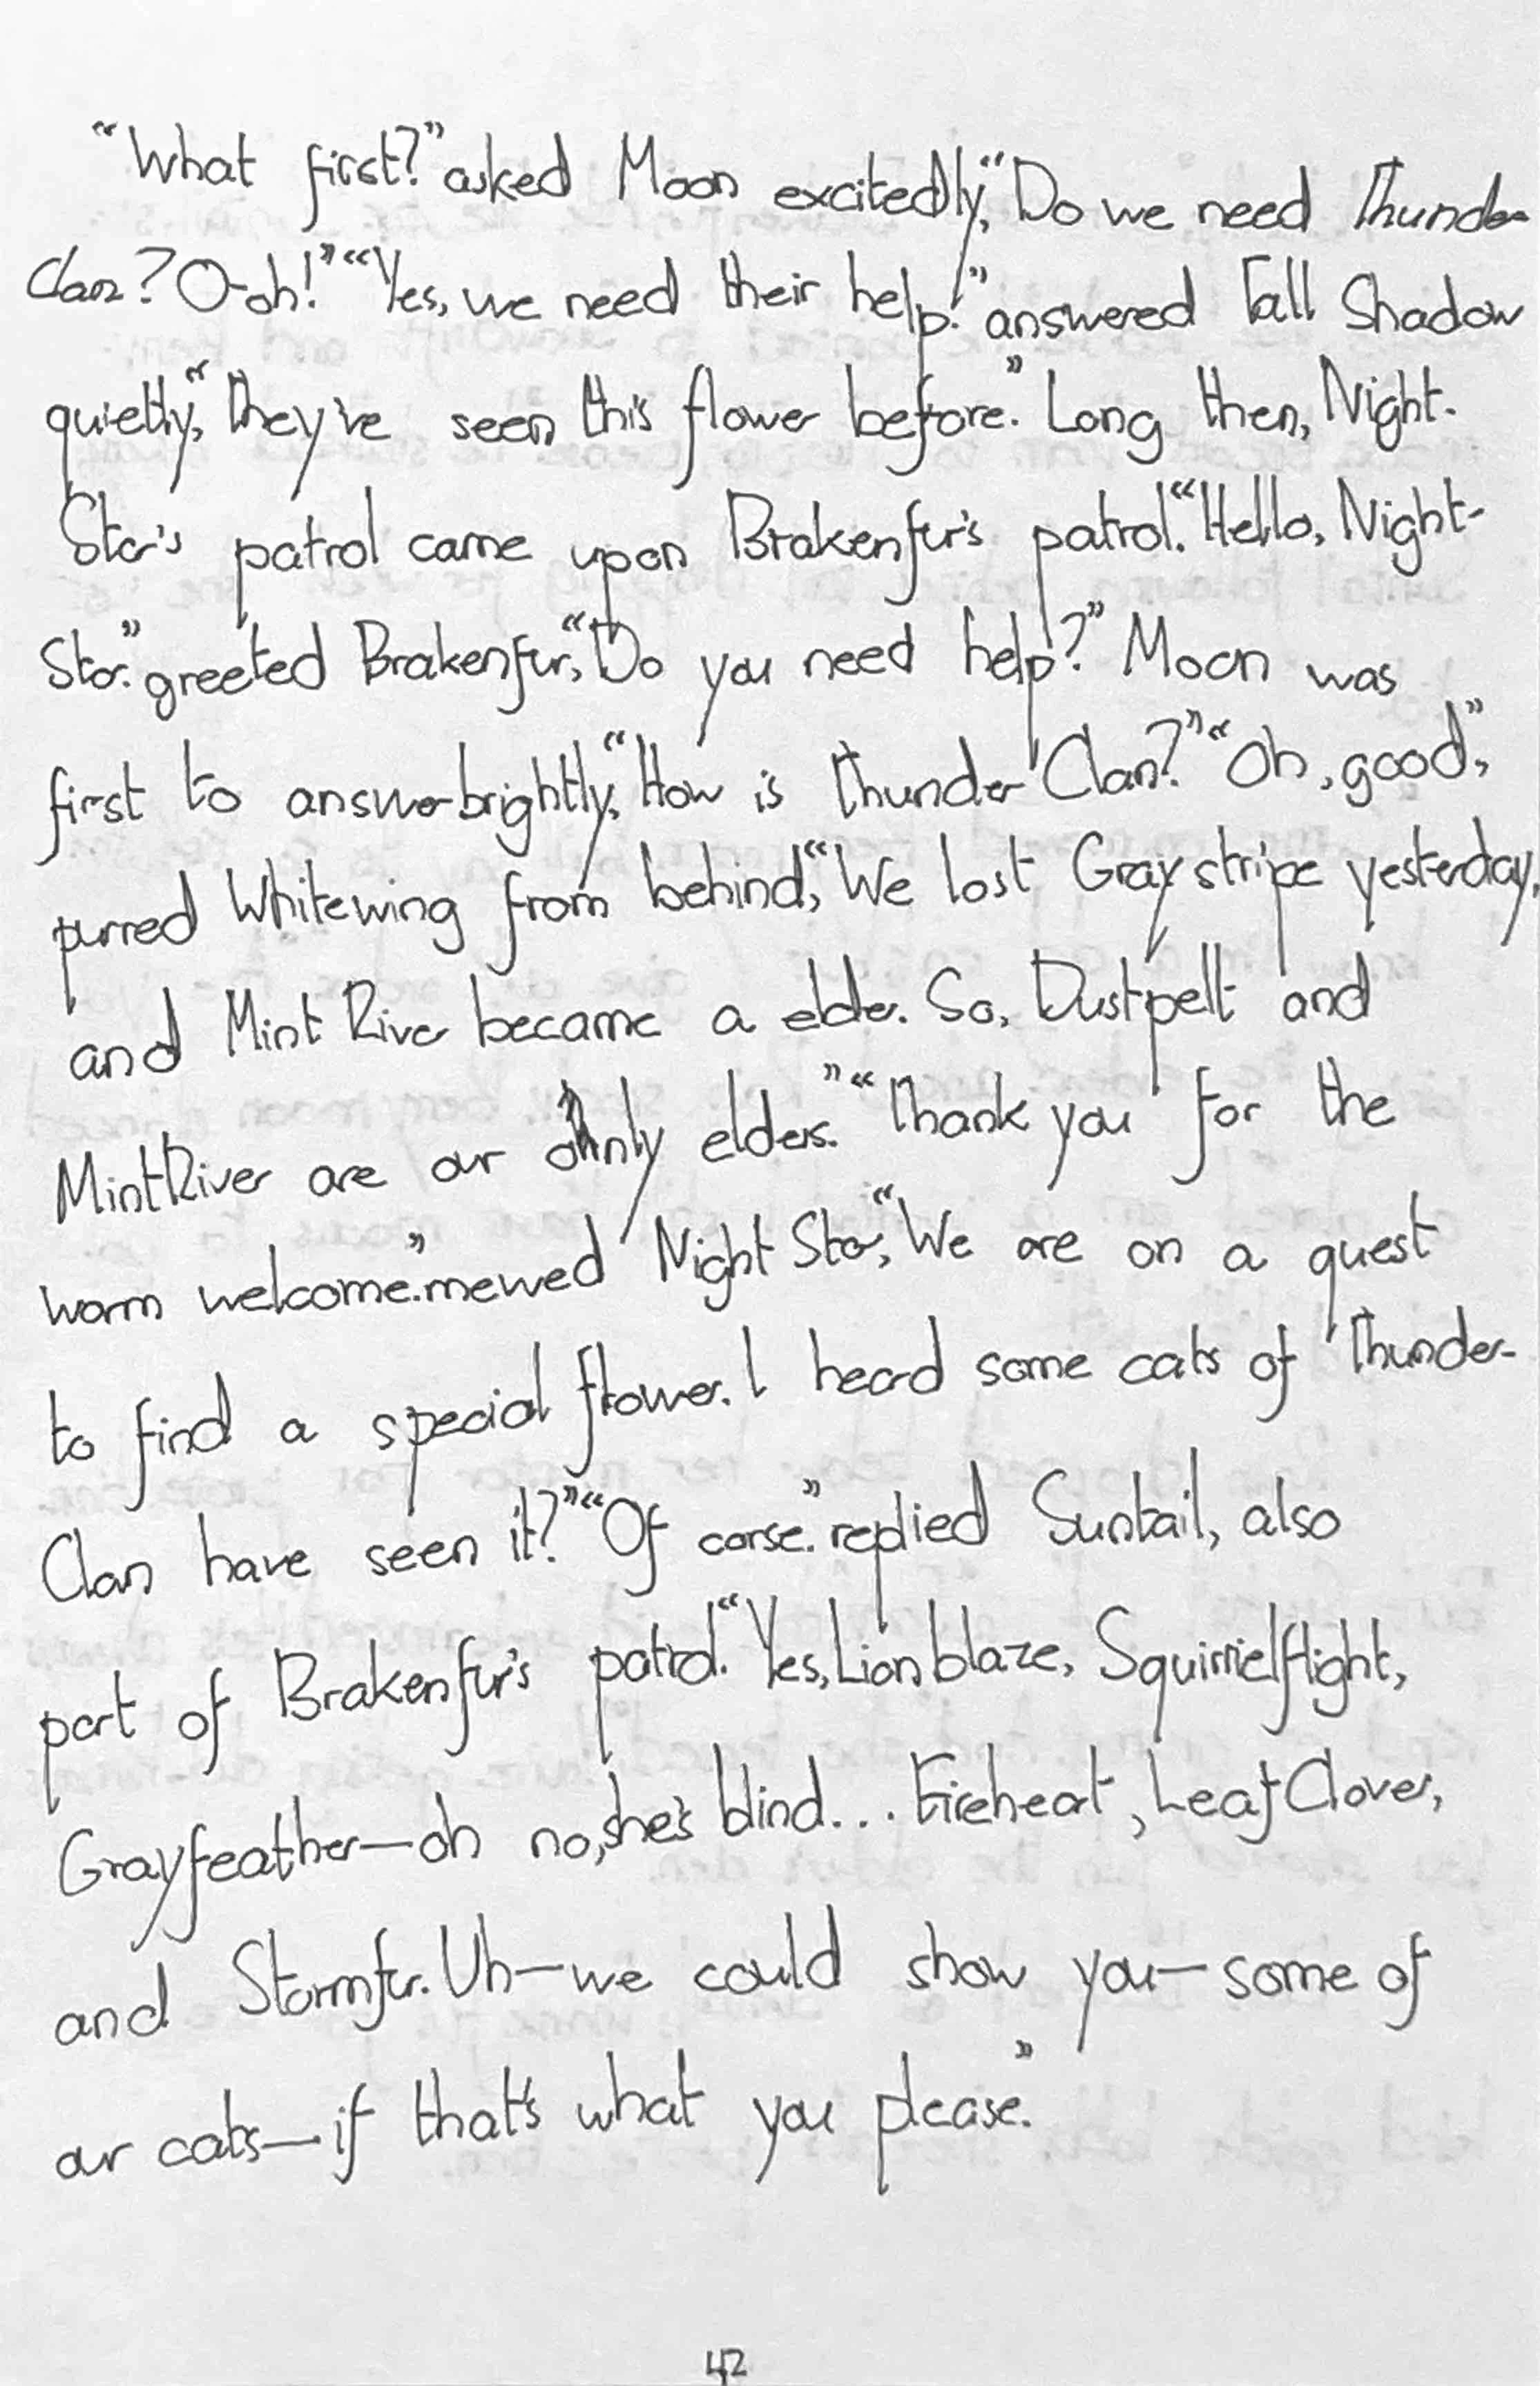 “What first?” asked Moon excitedly, “Do we need Thunder
Clan? O-oh!” “Yes, we need their help!” answered Tall Shadow
quietly, “They've seen this flower before.” Long then, Night-
Star's patrol came upon Brakenfur's patrol. “Hello, Night-
Star.” greeted Brakenfur, “Do you need help?” Moon was
first to answer brightly, “How is Thunder Clan?” “Oh, good”,
purred Whitewing from behind, “We lost Graystripe yesterday,
and Mint River became a elder. So, Dustpelt and
MintRiver are our only elders.” “Thank you for the
warm welcome.” mewed Night Star, “We are on a quest
to find a special flower. I heard some cats of Thunder-
Clan have seen it?” “Of corse.” replied Suntail, also
part of Brakenfur's patrol. “Yes, Lionblaze, Squirrielflight,
Grayfeather—oh no, she's blind... Fireheart, Leaf Clover,
and Stormfur. Uh—we could show you—some of
our cats—if that's what you please.”
42